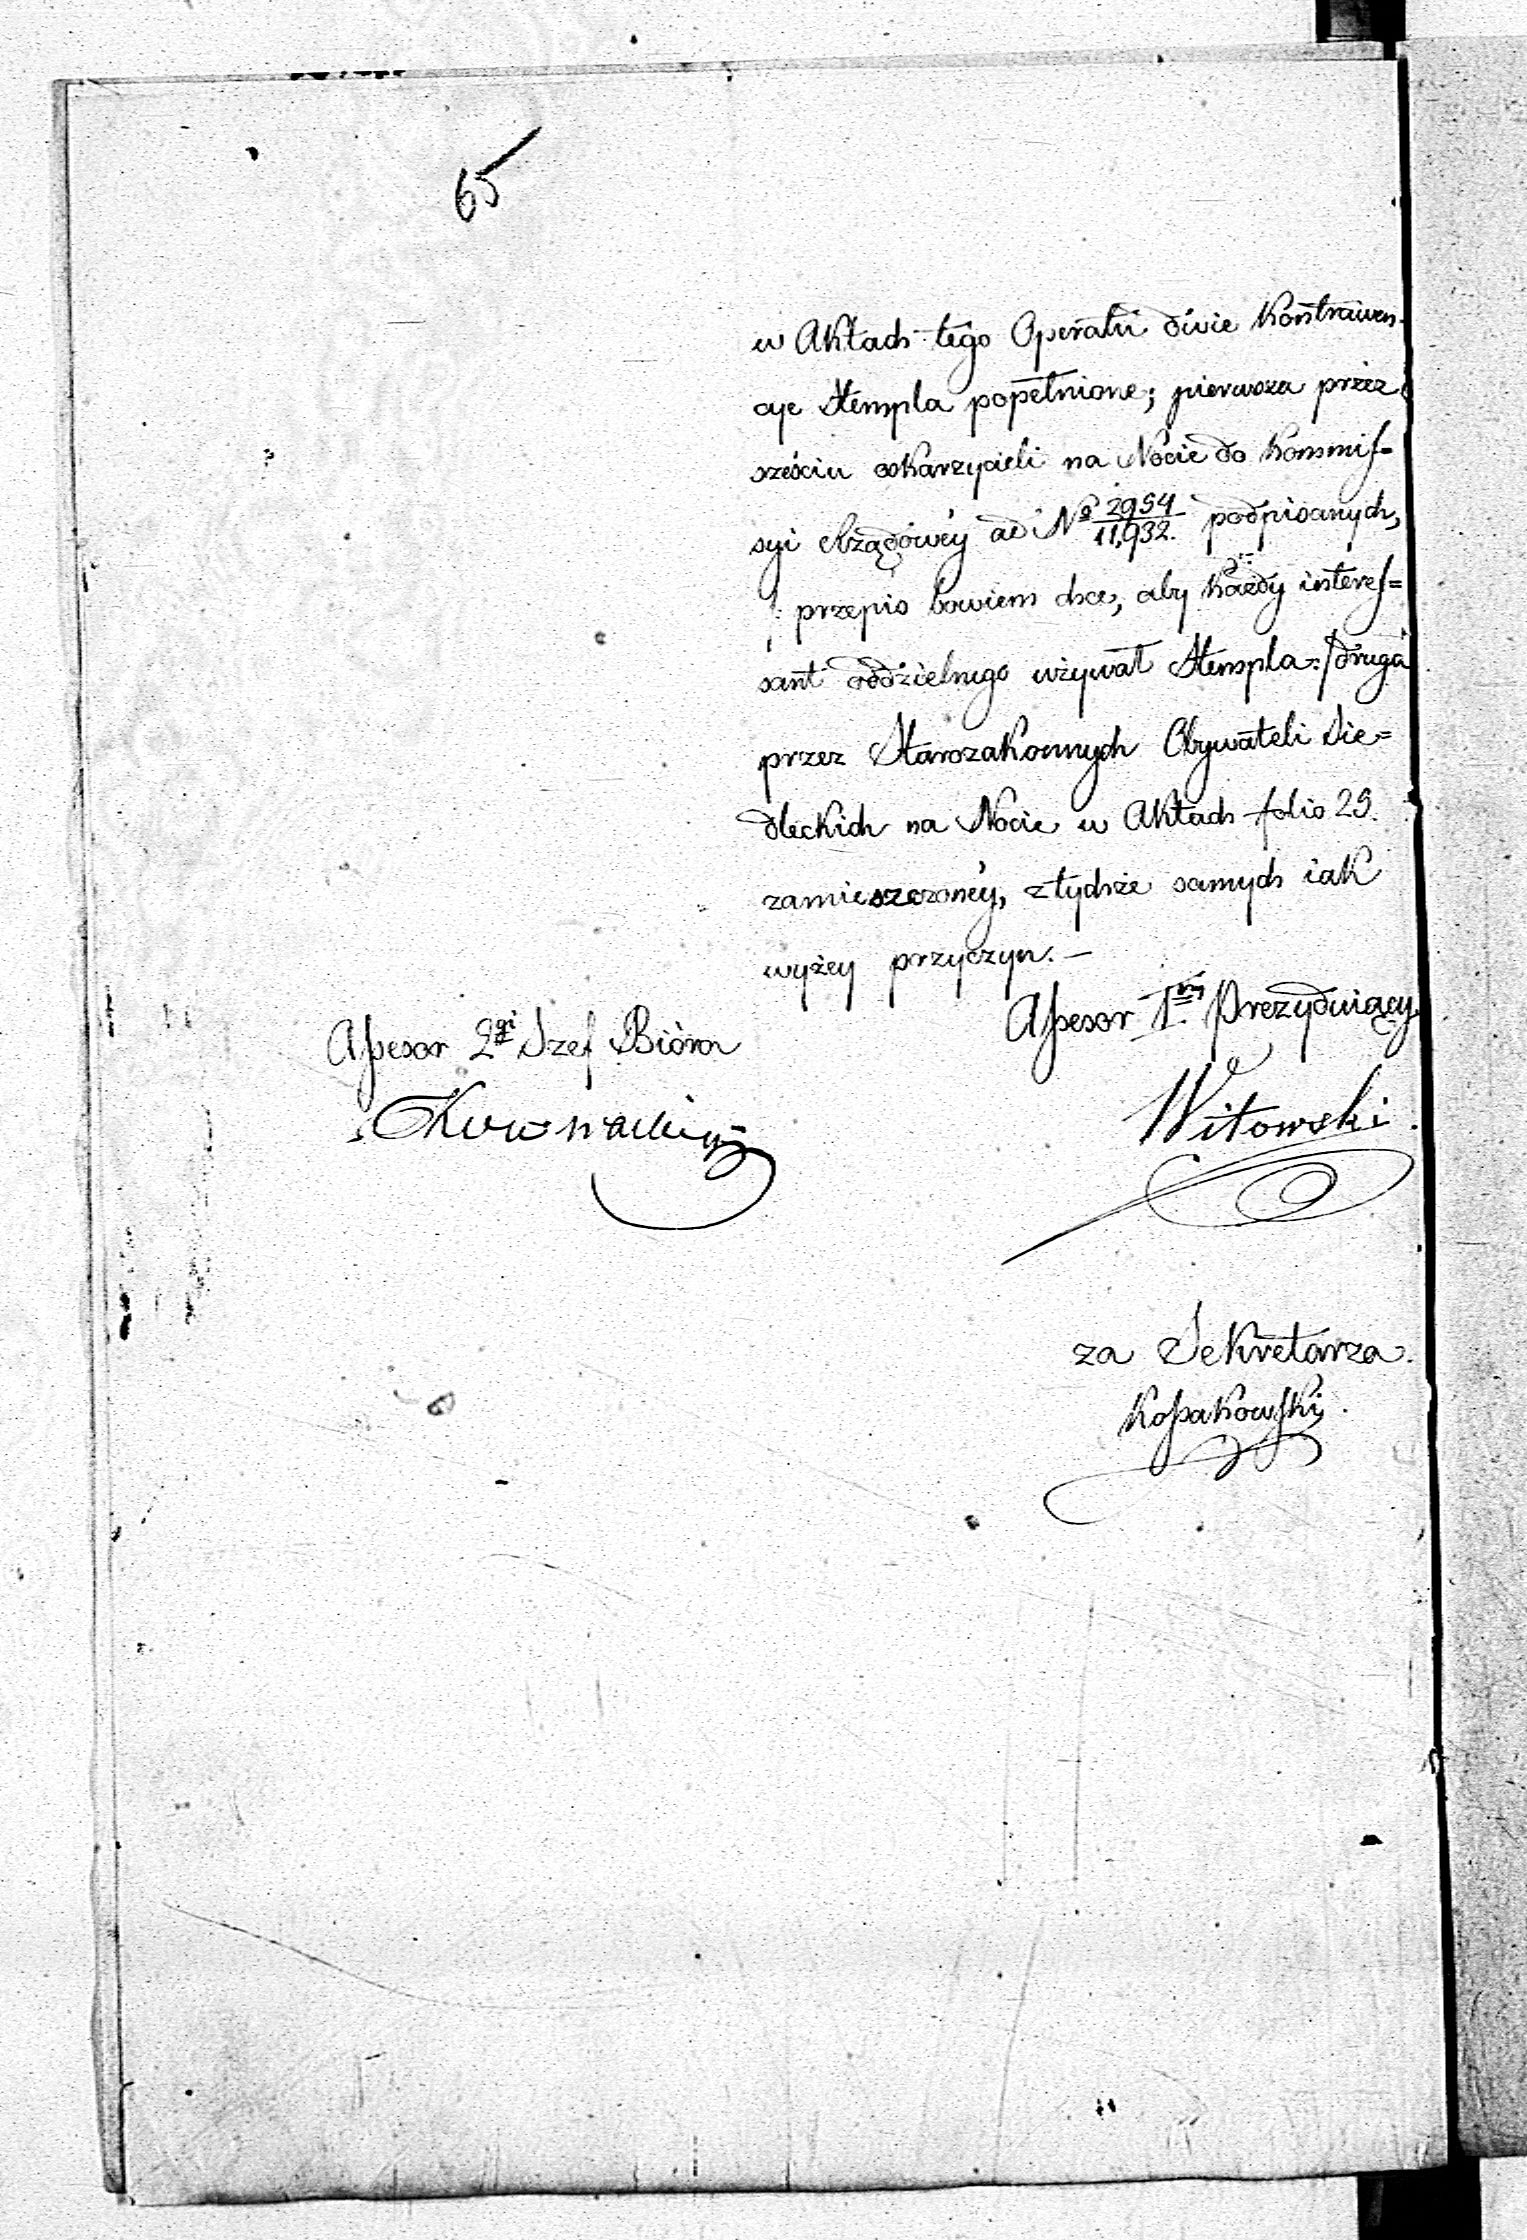 65
w Aktach tego Operatu dwie Kontrawen-
cye Stempla popełnione; pierwsza przez
sześciu oskarzycieli na Nocie do Kommis-
syi Rządowey ad No 2954/11,932. podpisanych,
/: przepis bowiem chce, aby każdy interes=
sant oddzielnego używał Stempla :/ druga
przez Starozakonnych Obywateli Sie=
dleckich na Nocie w Aktach folio 29.
zamieszczoney, z tychże samych iak
wyżey przyczyn. —
Assesor 1szy Prezyduiący
Assesor 2gi Szef Bióra
Witowski
za Sekretarza.
Kossakowski